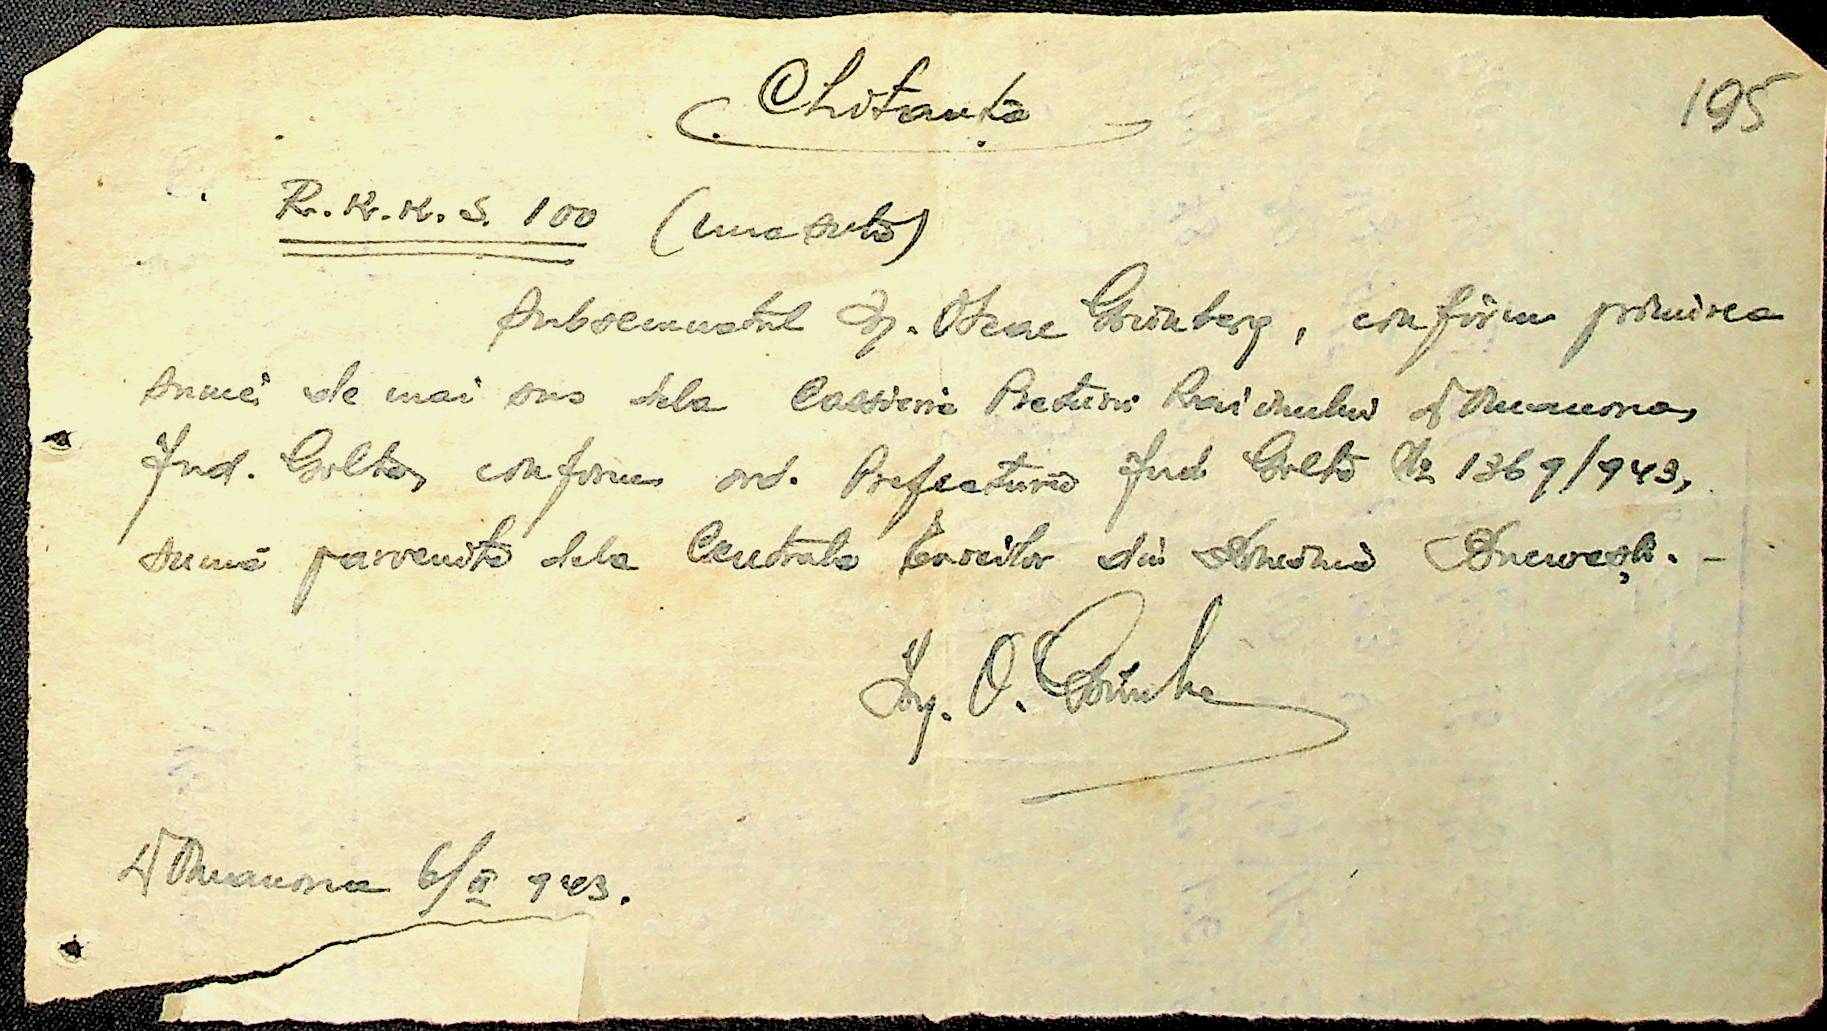 Chitanța
195
R.K.K.S. 100 (una sută)
Subsemnatul Ig. Osear Grünberg, confirm primirea
sumei de mai sus dela Casieria Preturii Raionului Domanovca,
Jud. Golta, conform ord. Prefecturii Jud Golta No 1369/943,
sumă parvenită dela Centrala Evreilor din România București. -
Ig. O. Grünbe
Domanovca 6/II 943.